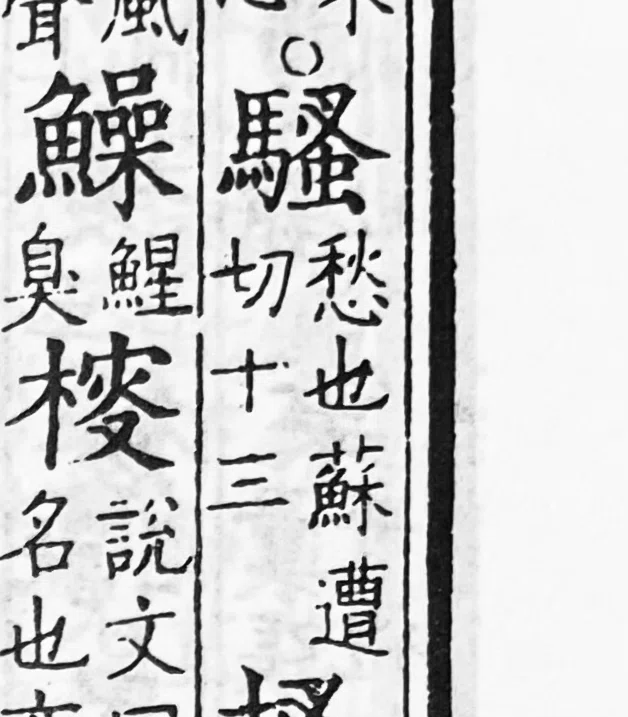 ○騷愁也蘇遭切十三
鱢鯹臭㮴說文名也